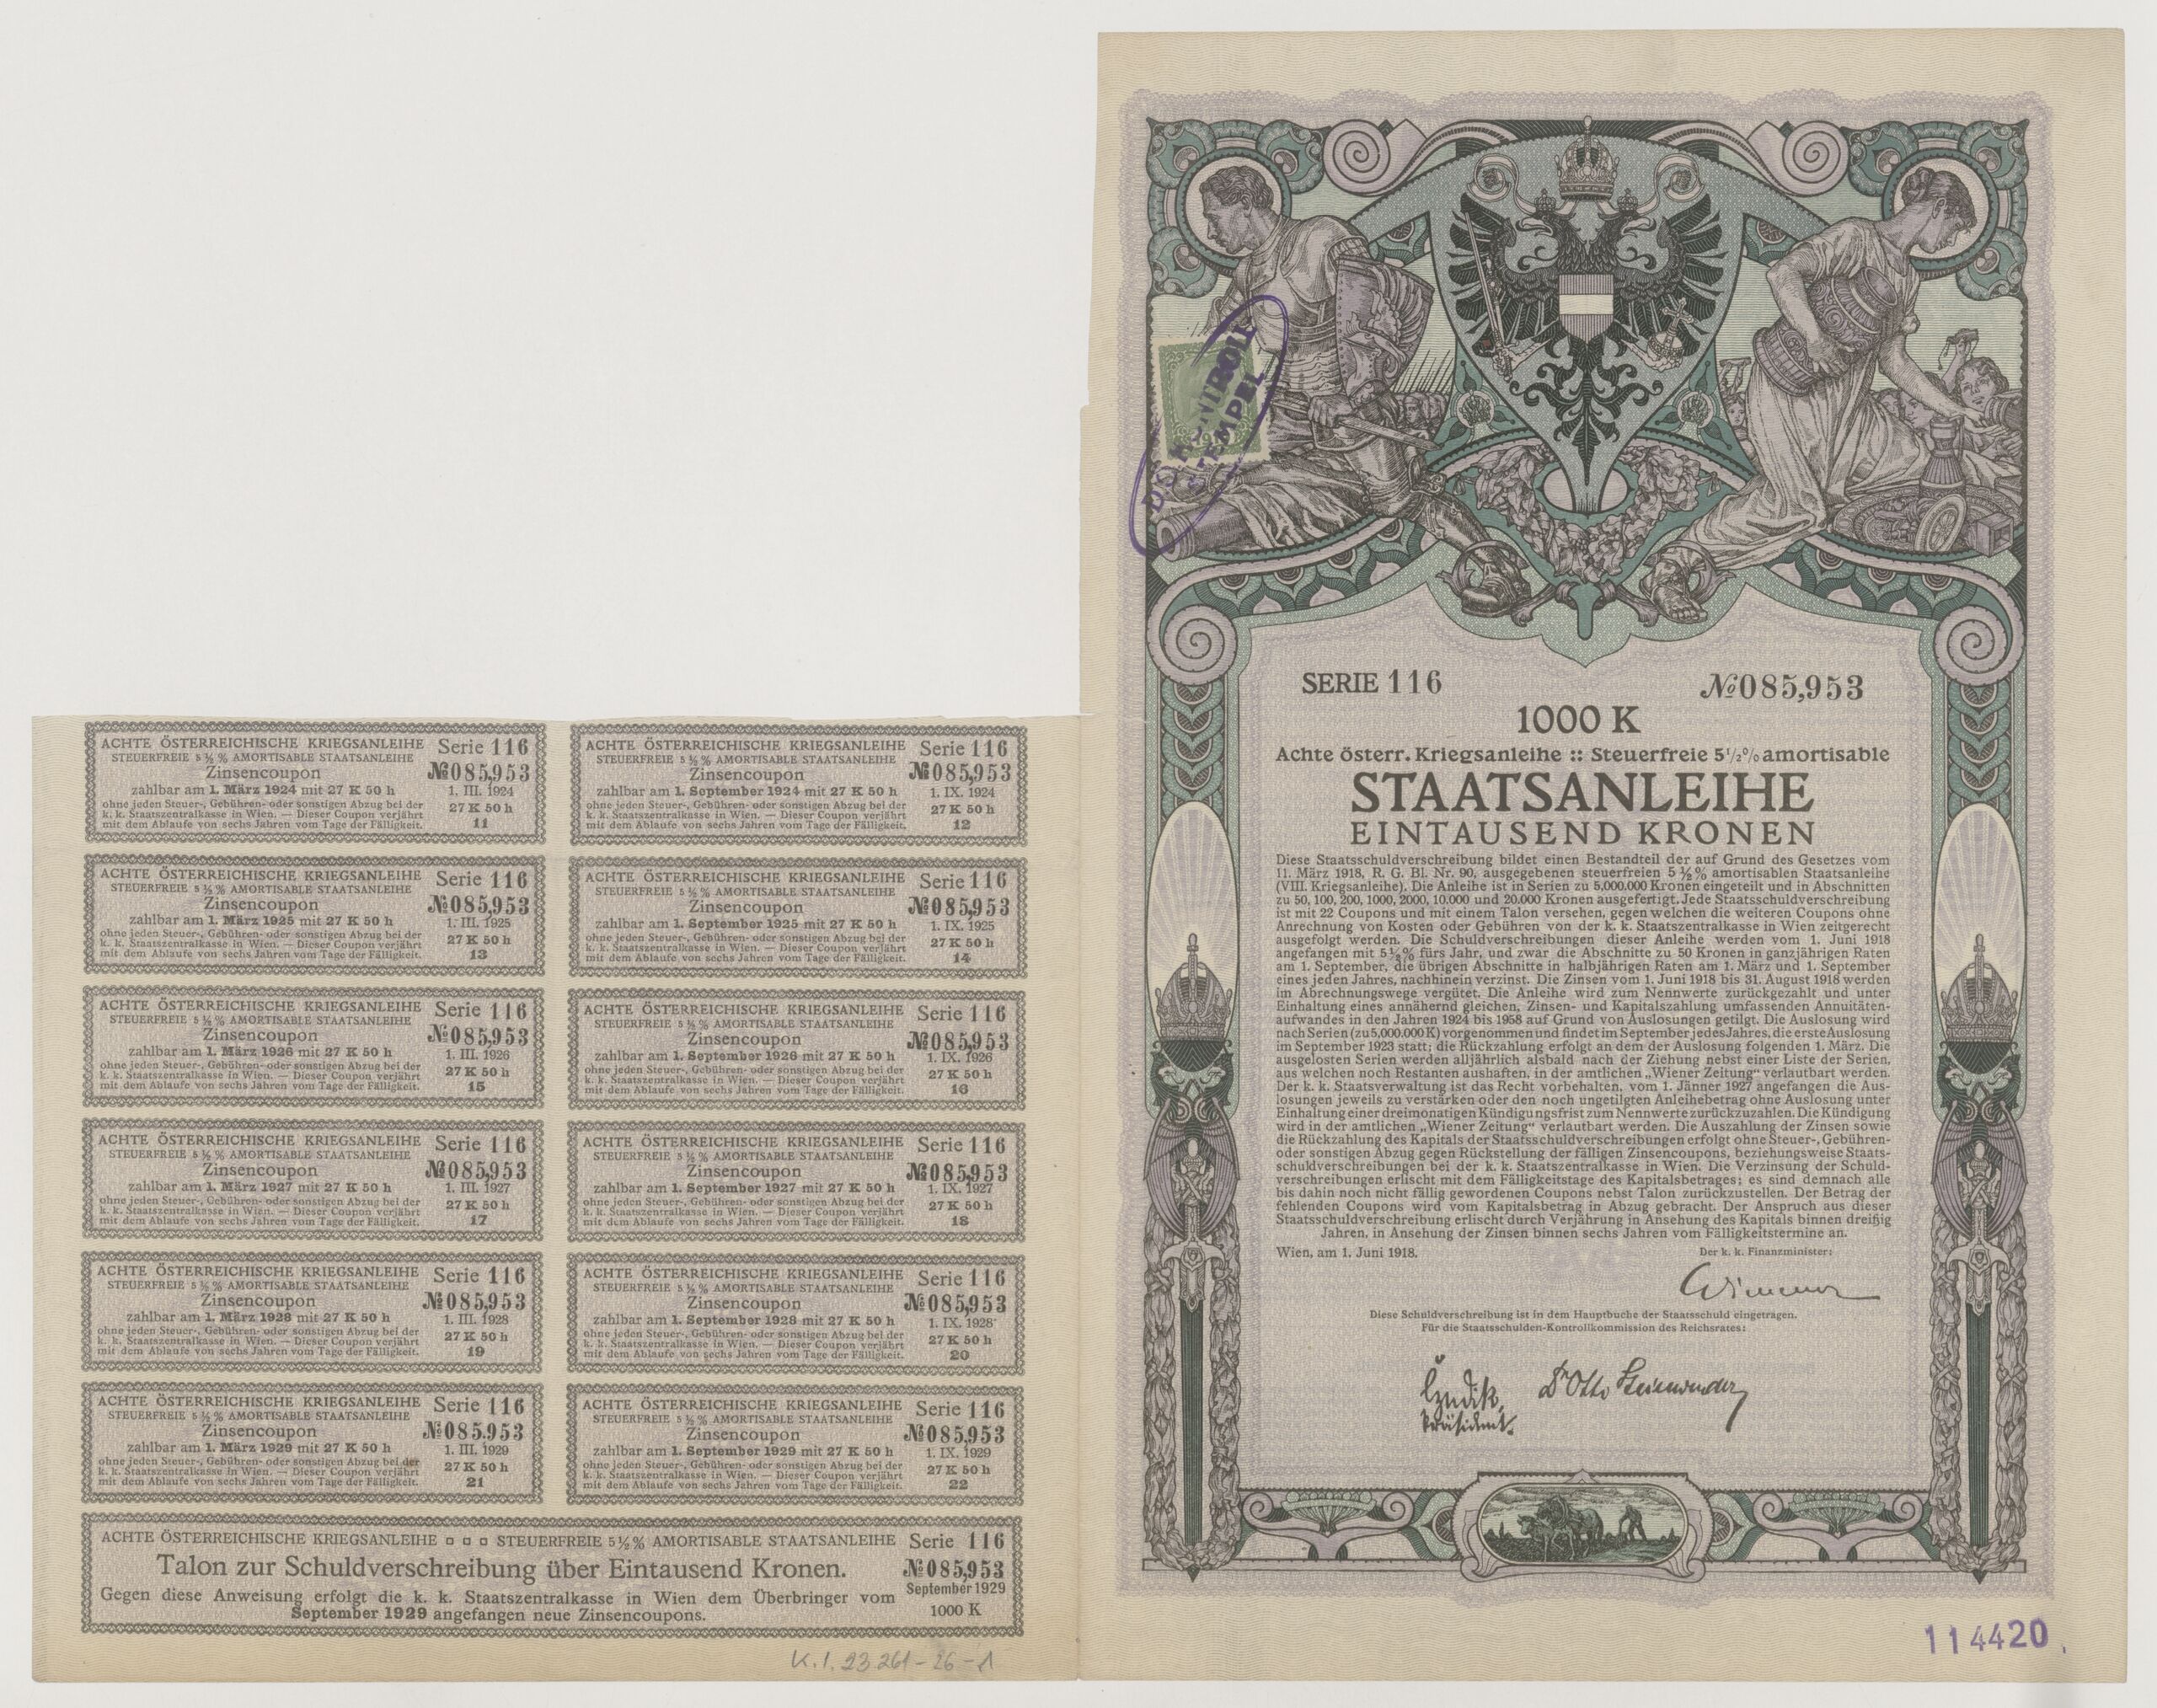 ACHTE ÖSTERREICHISCHE KRIEGSANLEIHE
STEUERFREIE 5 ½ % AMORTISABLE STAATSANLEIHE
Zinsencoupon
zahlbar am 1. März 1924 mit 27 K 50 h
ohne jeden Steuer-, Gebühren- oder sonstigen Abzug bei der
k. k. Staatszentralkasse in Wien. — Dieser Coupon verjährt
mit dem Ablaufe von sechs Jahren vom Tage der Fälligkeit.
Serie 116
№085,953
1. III. 1924
27 K 50 h
11
ACHTE ÖSTERREICHISCHE KRIEGSANLEIHE
STEUERFREIE 5 ½ % AMORTISABLE STAATSANLEIHE
Zinsencoupon
zahlbar am 1. September 1924 mit 27 K 50 h
ohne jeden Steuer-, Gebühren- oder sonstigen Abzug bei der
k. k. Staatszentralkasse in Wien. — Dieser Coupon verjährt
mit dem Ablaufe von sechs Jahren vom Tage der Fälligkeit.
Serie 116
№085,953
1. IX. 1924
27 K 50 h
12
ACHTE ÖSTERREICHISCHE KRIEGSANLEIHE
STEUERFREIE 5 ½ % AMORTISABLE STAATSANLEIHE
Zinsencoupon
zahlbar am 1. März 1925 mit 27 K 50 h
ohne jeden Steuer-, Gebühren- oder sonstigen Abzug bei der
k. k. Staatszentralkasse in Wien. — Dieser Coupon verjährt
mit dem Ablaufe von sechs Jahren vom Tage der Fälligkeit.
Serie 116
№085,953
1. III. 1925
27 K 50 h
13
ACHTE ÖSTERREICHISCHE KRIEGSANLEIHE
STEUERFREIE 5 ½ % AMORTISABLE STAATSANLEIHE
Zinsencoupon
zahlbar am 1. September 1925 mit 27 K 50 h
ohne jeden Steuer-, Gebühren- oder sonstigen Abzug bei der
k. k. Staatszentralkasse in Wien. — Dieser Coupon verjährt
mit dem Ablaufe von sechs Jahren vom Tage der Fälligkeit.
Serie 116
№085,953
1. IX. 1925
27 K 50 h
14
ACHTE ÖSTERREICHISCHE KRIEGSANLEIHE
STEUERFREIE 5 ½ % AMORTISABLE STAATSANLEIHE
Zinsencoupon
zahlbar am 1. März 1926 mit 27 K 50 h
ohne jeden Steuer-, Gebühren- oder sonstigen Abzug bei der
k. k. Staatszentralkasse in Wien. — Dieser Coupon verjährt
mit dem Ablaufe von sechs Jahren vom Tage der Fälligkeit.
Serie 116
№085,953
1. III. 1926
27 K 50 h
15
ACHTE ÖSTERREICHISCHE KRIEGSANLEIHE
STEUERFREIE 5 ½ % AMORTISABLE STAATSANLEIHE
Zinsencoupon
zahlbar am 1. September 1926 mit 27 K 50 h
ohne jeden Steuer-, Gebühren- oder sonstigen Abzug bei der
k. k. Staatszentralkasse in Wien. — Dieser Coupon verjährt
mit dem Ablaufe von sechs Jahren vom Tage der Fälligkeit.
Serie 116
№085,953
1. IX. 1926
27 K 50 h
16
ACHTE ÖSTERREICHISCHE KRIEGSANLEIHE
STEUERFREIE 5 ½ % AMORTISABLE STAATSANLEIHE
Zinsencoupon
zahlbar am 1. März 1927 mit 27 K 50 h
ohne jeden Steuer-, Gebühren- oder sonstigen Abzug bei der
k. k. Staatszentralkasse in Wien. — Dieser Coupon verjährt
mit dem Ablaufe von sechs Jahren vom Tage der Fälligkeit.
Serie 116
№085,953
1. III. 1927
27 K 50 h
17
ACHTE ÖSTERREICHISCHE KRIEGSANLEIHE
STEUERFREIE 5 ½ % AMORTISABLE STAATSANLEIHE
Zinsencoupon
zahlbar am 1. September 1927 mit 27 K 50 h
ohne jeden Steuer-, Gebühren- oder sonstigen Abzug bei der
k. k. Staatszentralkasse in Wien. — Dieser Coupon verjährt
mit dem Ablaufe von sechs Jahren vom Tage der Fälligkeit.
Serie 116
№085,953
1. IX. 1927
27 K 50 h
18
ACHTE ÖSTERREICHISCHE KRIEGSANLEIHE
STEUERFREIE 5 ½ % AMORTISABLE STAATSANLEIHE
Zinsencoupon
zahlbar am 1. März 1928 mit 27 K 50 h
ohne jeden Steuer-, Gebühren- oder sonstigen Abzug bei der
k. k. Staatszentralkasse in Wien. — Dieser Coupon verjährt
mit dem Ablaufe von sechs Jahren vom Tage der Fälligkeit.
Serie 116
№085,953
1. III. 1928
27 K 50 h
19
ACHTE ÖSTERREICHISCHE KRIEGSANLEIHE
STEUERFREIE 5 ½ % AMORTISABLE STAATSANLEIHE
Zinsencoupon
zahlbar am 1. September 1928 mit 27 K 50 h
ohne jeden Steuer-, Gebühren- oder sonstigen Abzug bei der
k. k. Staatszentralkasse in Wien. — Dieser Coupon verjährt
mit dem Ablaufe von sechs Jahren vom Tage der Fälligkeit.
Serie 116
№085,953
1. IX. 1928
27 K 50 h
20
ACHTE ÖSTERREICHISCHE KRIEGSANLEIHE
STEUERFREIE 5 ½ % AMORTISABLE STAATSANLEIHE
Zinsencoupon
zahlbar am 1. März 1929 mit 27 K 50 h
ohne jeden Steuer-, Gebühren- oder sonstigen Abzug bei der
k. k. Staatszentralkasse in Wien. — Dieser Coupon verjährt
mit dem Ablaufe von sechs Jahren vom Tage der Fälligkeit.
Serie 116
№085.953
1. III. 1929
27 K 50 h
21
ACHTE ÖSTERREICHISCHE KRIEGSANLEIHE
STEUERFREIE 5 ½ % AMORTISABLE STAATSANLEIHE
Zinsencoupon
zahlbar am 1. September 1929 mit 27 K 50 h
ohne jeden Steuer-, Gebühren- oder sonstigen Abzug bei der
k. k. Staatszentralkasse in Wien. — Dieser Coupon verjährt
mit dem Ablaufe von sechs Jahren vom Tage der Fälligkeit.
Serie 116
№085,953
1. IX. 1929
27 K 50 h
22
ACHTE ÖSTERREICHISCHE KRIEGSANLEIHE ▫ ▫ ▫ STEUERFREIE 5½% AMORTISABLE STAATSANLEIHE
Talon zur Schuldverschreibung über Eintausend Kronen.
Gegen diese Anweisung erfolgt die k. k. Staatszentralkasse in Wien dem Überbringer vom
September 1929 angefangen neue Zinsencoupons.
Serie 116
№085,953
September 1929
1000 K
K.I. 23.261-26-1
STEMPEL
SERIE 116
№085,953
1000 K
Achte österr. Kriegsanleihe :: Steuerfreie 5½% amortisable
STAATSANLEIHE
EINTAUSEND KRONEN
Diese Staatsschuldverschreibung bildet einen Bestandteil der auf Grund des Gesetzes vom
11. März 1918, R. G. Bl. Nr. 90, ausgegebenen steuerfreien 5 ½% amortisablen Staatsanleihe
(VIII. Kriegsanleihe). Die Anleihe ist in Serien zu 5,000.000 Kronen eingeteilt und in Abschnitten
zu 50, 100, 200, 1000, 2000, 10.000 und 20.000 Kronen ausgefertigt. Jede Staatsschuldverschreibung
ist mit 22 Coupons und mit einem Talon versehen, gegen welchen die weiteren Coupons ohne
Anrechnung von Kosten oder Gebühren von der k. k. Staatszentralkasse in Wien zeitgerecht
ausgefolgt werden. Die Schuldverschreibungen dieser Anleihe werden vom 1. Juni 1918
angefangen mit 5½% fürs Jahr, und zwar die Abschnitte zu 50 Kronen in ganzjährigen Raten
am 1. September, die übrigen Abschnitte in halbjährigen Raten am 1. März und 1. September
eines jeden Jahres, nachhinein verzinst. Die Zinsen vom 1. Juni 1918 bis 31. August 1918 werden
im Abrechnungswege vergütet. Die Anleihe wird zum Nennwerte zurückgezahlt und unter
Einhaltung eines annähernd gleichen, Zinsen- und Kapitalszahlung umfassenden Annuitäten-
aufwandes in den Jahren 1924 bis 1958 auf Grund von Auslosungen getilgt. Die Auslosung wird
nach Serien (zu 5,000.000 K) vorgenommen und findet im September jedes Jahres, die erste Auslosung
im September 1923 statt; die Rückzahlung erfolgt an dem der Auslosung folgenden 1. März. Die
ausgelosten Serien werden alljährlich alsbald nach der Ziehung nebst einer Liste der Serien,
aus welchen noch Restanten aushaften, in der amtlichen „Wiener Zeitung“ verlautbart werden.
Der k. k. Staatsverwaltung ist das Recht vorbehalten, vom 1. Jänner 1927 angefangen die Aus-
losungen jeweils zu verstärken oder den noch ungetilgten Anleihebetrag ohne Auslosung unter
Einhaltung einer dreimonatigen Kündigungsfrist zum Nennwerte zurückzuzahlen. Die Kündigung
wird in der amtlichen „Wiener Zeitung“ verlautbart werden. Die Auszahlung der Zinsen sowie
die Rückzahlung des Kapitals der Staatsschuldverschreibungen erfolgt ohne Steuer-, Gebühren-
oder sonstigen Abzug gegen Rückstellung der fälligen Zinsencoupons, beziehungsweise Staats-
schuldverschreibungen bei der k. k. Staatszentralkasse in Wien. Die Verzinsung der Schuld-
verschreibungen erlischt mit dem Fälligkeitstage des Kapitalsbetrages; es sind demnach alle
bis dahin noch nicht fällig gewordenen Coupons nebst Talon zurückzustellen. Der Betrag der
fehlenden Coupons wird vom Kapitalsbetrag in Abzug gebracht. Der Anspruch aus dieser
Staatsschuldverschreibung erlischt durch Verjährung in Ansehung des Kapitals binnen dreißig
Jahren, in Ansehung der Zinsen binnen sechs Jahren vom Fälligkeitstermine an.
Wien, am 1. Juni 1918.
Der k. k. Finanzminister:
Wimmer
Diese Schuldverschreibung ist in dem Hauptbuche der Staatsschuld eingetragen.
Für die Staatsschulden-Kontrollkommission des Reichsrates:
Präsident.
Dr Otto Steinwender
114420.